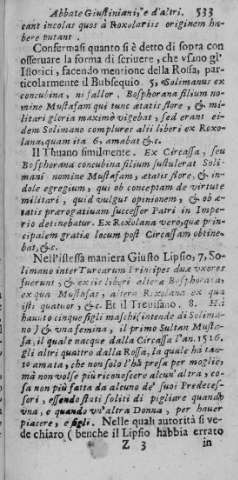 Abbate Giustiniani, e d'altri. 533
cant incolas quos à Roxolariis originem ha-
bere putant.
Confermasi quanto si è detto di sopra con
osseruare la forma di scriuere, che vsano gl'
Istorici, facendo mentione della Rossa, par-
ticolarmente il Busbequio 5, Solimanus ex
concubina, ni fallor, Bosphorana filium nomi-
ne Mustafam qui tunc ætatis flore, & mi-
litari gloria maximè vigebat, sed erant ei-
dem Solimano complures alii liberi ex Roxo-
lana, quam ita 6. amabat, &c.
Il Thuano similmente. Ex Circassa, seu
Bosphorana concubina filium sustulerat Soli-
mani nomine Mustafam, ætatis flore, & in-
dole egregium, qui ob conceptam de virtute
militari, quid vulgus opinionem, & ob æ-
tatis prærogatiuam successor Patri in Impe-
rio destinebatur. Ex Roxolana vero, quæ prin-
cipalem gratiæ locum post Circassam obtine-
bat, &c.
Nell'istessa maniera Giusto Lipsio, 7, So-
limano inter Turcarum Principes duæ vxores
fuerunt, & ex iis liberi altera Bosphorana,
ex qua Mustafas, altera Roxolana ex qua
isti quatuor, &c. Et il Treuisano. 8. Hà
hauuto cinque figli maschi (intende di Solima-
no) & vna femina, il primo Sultan Musta-
fa, il quale nacque dalla Circassa l'an. 1516.
gli altri quattro dalla Rossa, la quale hà tan-
to amata, che non solo l'hà presa per moglie,
mà non volse più riconoscere alcun'altra, co-
sa non più fatta da alcuno de' suoi Predeces-
sori, essendo stati soliti di pigliare quando
vna, e quando vn'altra Donna, per hauer
piacere, e figli. Nelle quali autorità si ve-
de chiaro (benche il Lipsio habbia errato
Z 3 in